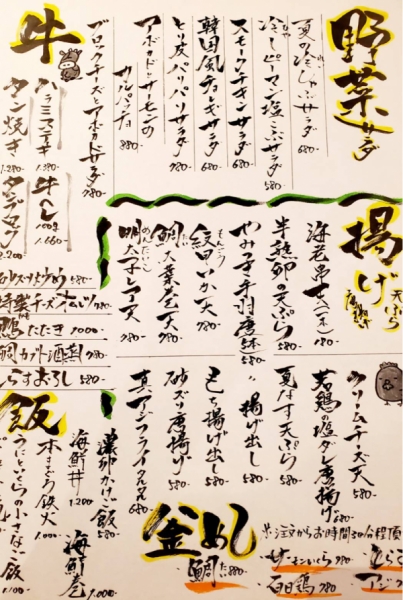 野菜サラダ
夏の冷しゃぶサラダ 780-
冷しピーマン塩こぶサラダ 580-
スモークチキンサラダ 680-
韓国風チョレギサラダ 680-
とり皮パリパリサラダ 680-
アボカドとサーモンの
カルパッチョ 880-
ブロックチーズとアボカドサラダ 780-
牛
ハラミステーキ 1.380-
タン焼き 1.280-
牛ヘレ 100g 1.660-
揚げ 天ぷら
半熟卵の天ぷら 580-
紋甲いか天 680-
もんごう
鯛大葉包天 780-
明太子レンコン天 780-
めんたいこ
クリームチーズ天 580-
若鶏の塩ダレ唐揚げ 680-
夏なす天ぷら 580-
揚げ出し 580-
もち揚げ出し 580-
砂ズリ唐揚げ 580-
真アジフライタルタル 680-
鴨たたき 1000-
鯛カブト酒蒸 780-
しらすおろし 580-
飯
濃卵かけご飯 580-
海鮮丼 1.200-
海鮮巻
本まぐろ鉄火
うにといくらの小さなご飯 1.100-
釜めし
※注文からお時間
鯛 880-
サーモンいくら 980-
アジ